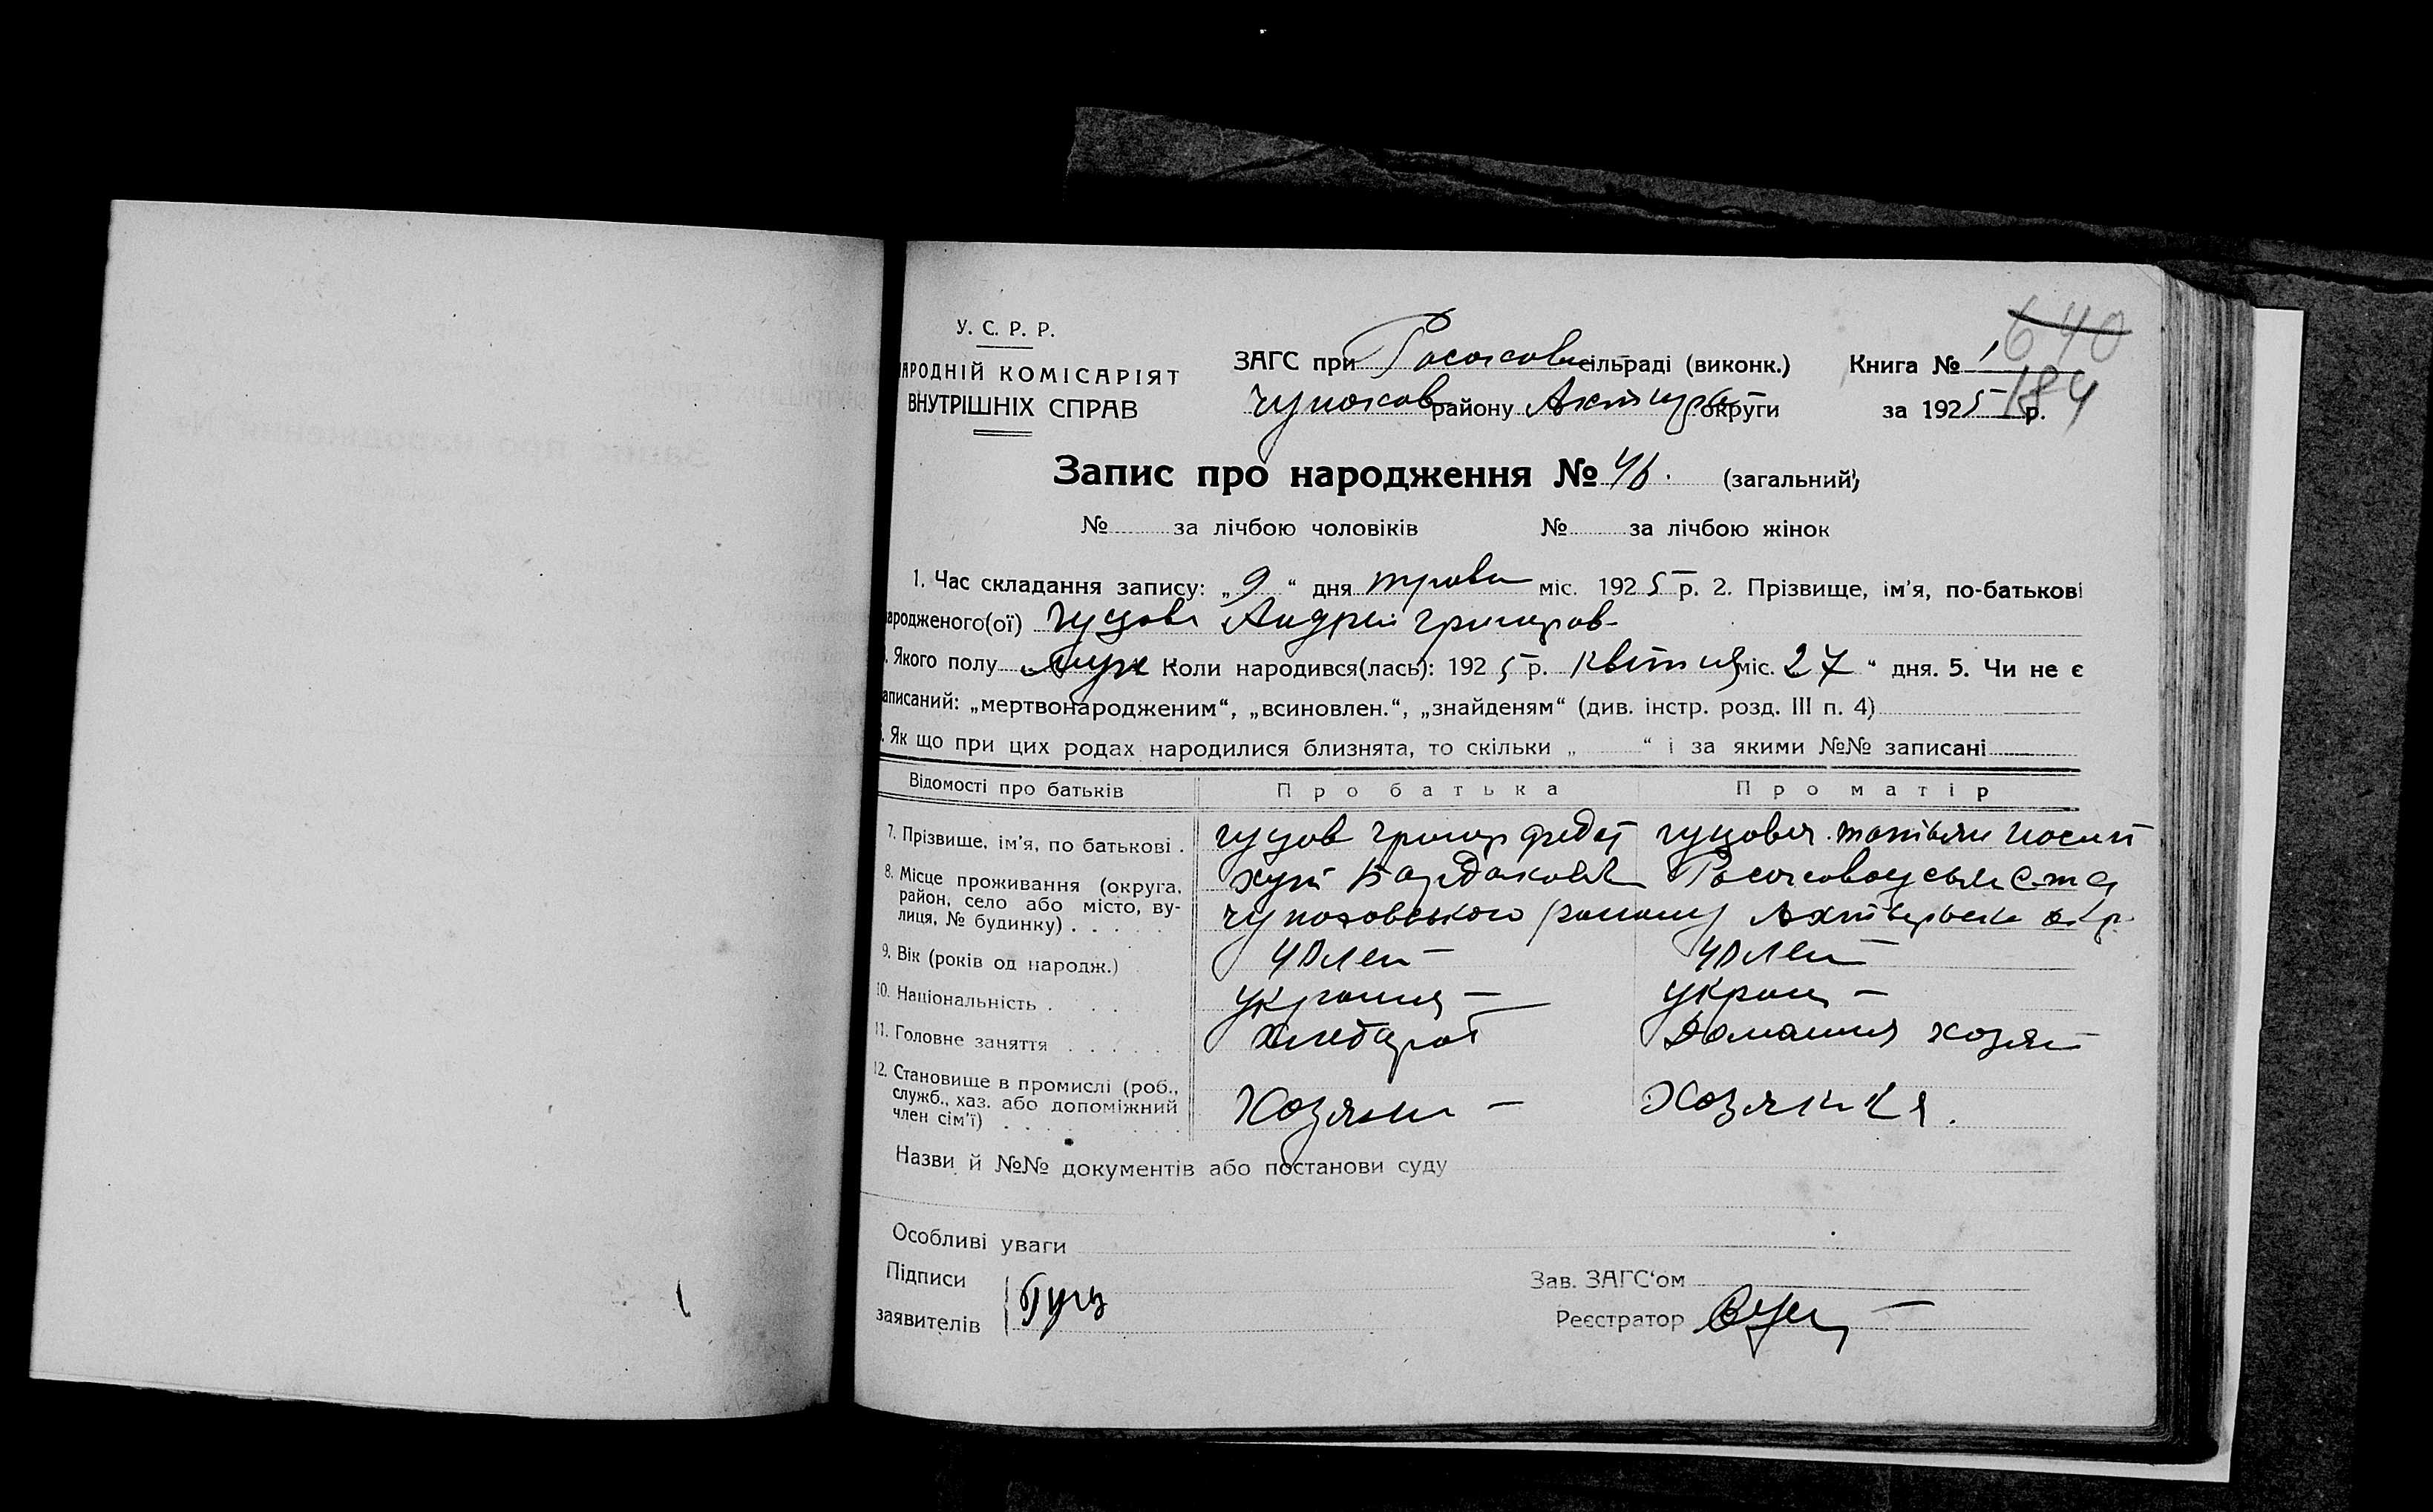 640
У. С. Р. Р.
АРОДНІЙ КОМІСАРІЯТ
ВНУТРІШНІХ СПРАВ
ЗАГС при Росохов сільраді (виконк.)
Чупахов району Ахтир округи
Книга № 1
184
за 1925 р.
Запис про народження № 46. (загальний)
№ за лічбою чоловіків № за лічбою жінок
1. Час складання запису: „9“ дня травн міс. 1925 р. 2. Прізвище, ім’я, по-батькові
ародженого(ої) Гуцов Андрей Григоров
. Якого полу муж Коли народився(лась): 1925 р. квітня міс. 27 “ дня. 5. Чи не є
аписаний: „мертвонародженим“, „всиновлен.“, „знайденям“ (див. інстр. розд. III п. 4)
. Як що при цих родах народилися близнята, то скільки „ “ і за якими №№ записані
Відомості про батьків Про батька Про матір
7. Прізвище, ім’я, по батькові . гуцов григор федот гуцовя татіяни иосип
8. Місце проживання (округа, район, село або місто, вулиця, № будинку) . . . . . хут
Чупаховського району Ахтирьск окр.
9. Вік (років од народж.) 40 лет 40 лет
10. Національність . . . . україня україн
11. Головне заняття . . . . . хлебороб домашня хозяй
12. Становище в промислі (роб., служб., хаз. або допоміжний член сім’ї) . . . . . Хозяин Хозяйка.
Назви й №№ документів або постанови суду
Особливі уваги
Підписи
заявителів Гуц
Зав. ЗАГС‘ом
Реєстратор